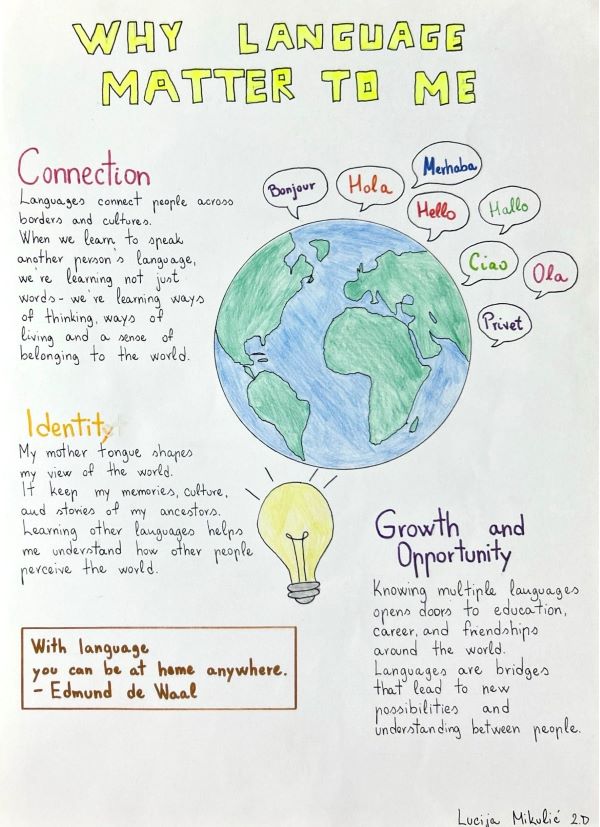 WHY LANGUAGE
MATTER TO ME
Connection
Languages connect people across
borders and cultures.
When we learn to speak
another person's language,
we're learning not just
words- we're learning ways
of thinking, ways of
living and a sense of
belonging to the world.
Bonjour
Hola
Merhaba
Hello
Hallo
Ciao
Ola
Privet
Identity
My mother tongue shapes
my view of the world.
It keep my memories, culture,
and stories of my ancestors.
Learning other languages helps
me understand how other people
perceive the world.
With language
you can be at home anywhere.
- Edmund de Waal
Growth and
Opportunity
Knowing multiple languages
opens doors to education,
career, and friendships
around the world.
Languages are bridges
that lead to new
possibilities and
understanding between people.
Lucija Mikulić 2.D